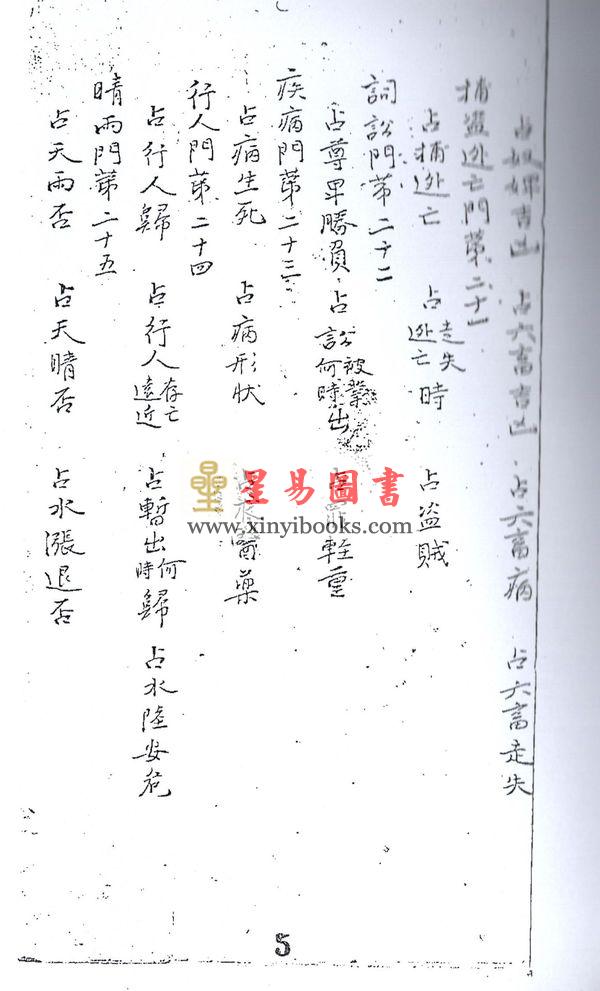 占奴婢吉凶 占六畜吉凶 占六畜病 占六畜走失
捕盗逃亡門第二十一
占捕逃亡 占走失逃亡時 占盗賊
詞訟門第二十二
占尊卑勝負 占訟被禁何時出 占 輕重
疾病門第二十三
占病生死 占病形狀 占 醫藥
行人門第二十四
占行人歸 占行人存亡遠近 占暫出何時歸 占水陸安危
晴雨門第二十五
占天雨否 占天晴否 占水漲退否
星易圖書
www.xinyibooks.com
5